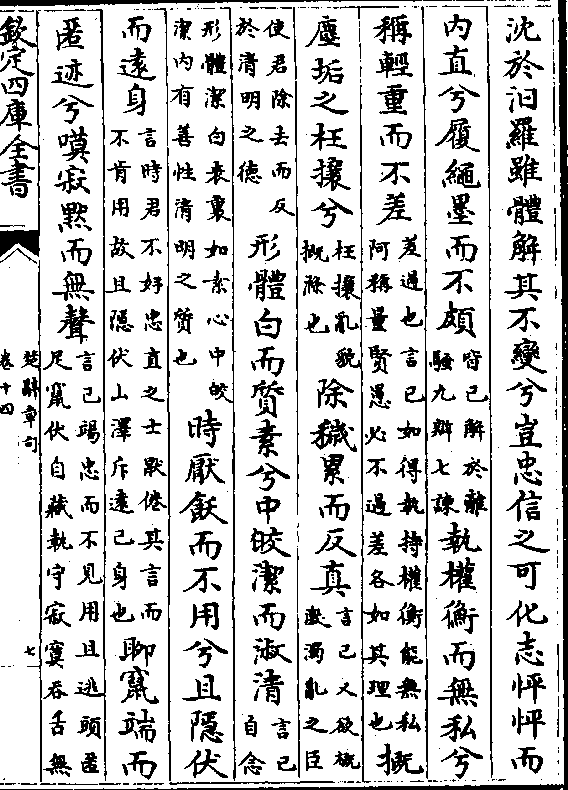 沈於汨羅雖體解其不變兮豈忠信之可化志怦怦而
內直兮履繩墨而不頗皆已解於離騷九辯七諫執權衡而無私兮
稱輕重而不差差過也言已如得執持權衡能無私阿稱量賢愚必不過差各如其理也摡
塵垢之枉攘兮枉攘亂貌摡滌也除穢累而反真言已又欲摡激濁亂之臣
使君除去而反於清明之德形體白而質素兮中皎潔而淑清言已自念
形體潔白表裏如素心中皎潔內有善性清明之質也時厭飫而不用兮且隱伏
而遠身言時君不好忠直之士厭倦其言而不肯用故且隱伏山澤斥遠已身也聊竄端而
匿迹兮嗼寂默而無聲言已竭忠而不見用且逃頭匿足竄伏自藏執守寂寞吞舌無
欽定四庫全書
楚辭章句
卷十四
七